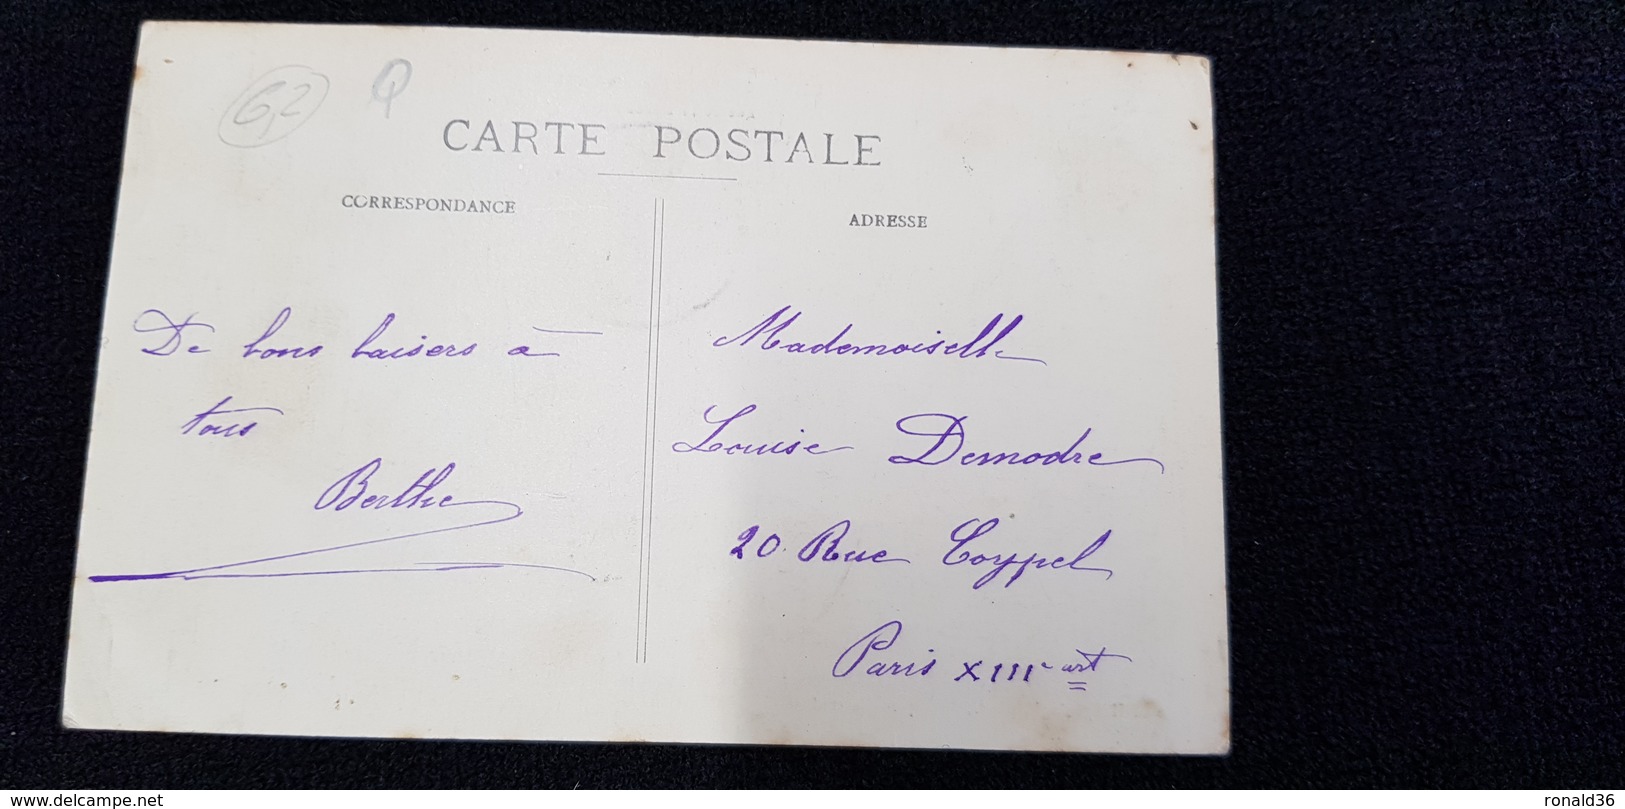 62
Q
CARTE POSTALE
CORRESPONDANCE
ADRESSE
De bons baisers à
tous
Berthe
Mademoiselle
Louise Demodre
20 Rue Coypel
Paris XIIIe art
delcampe.net
ronald36